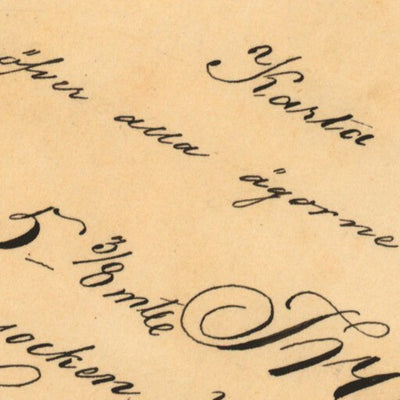 Karta
öfver alla ägorne
5 3/8 mtle
socken